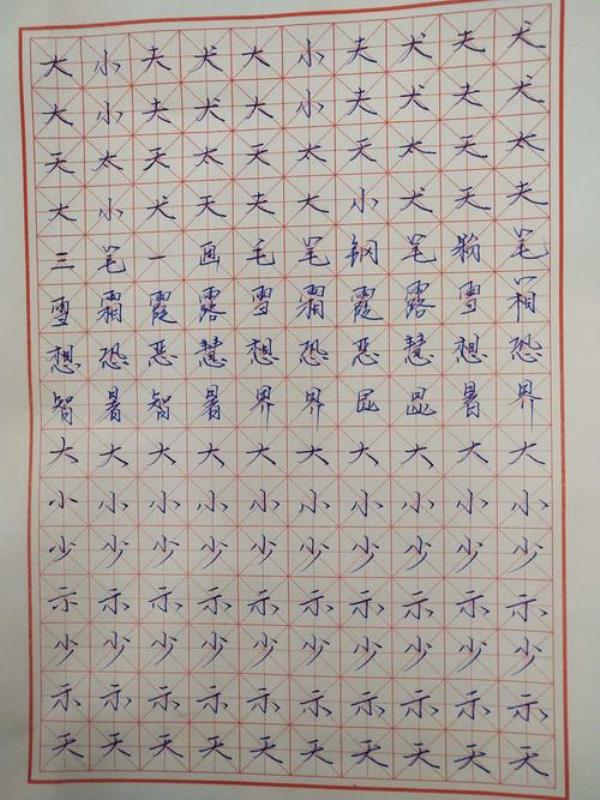 大小夫犬大小夫犬夫犬
大小夫犬大小夫犬夫犬
天太天太天太天太天太
大小犬天夫大小犬天夫
三笔一画毛笔钢笔粉笔
雪霜霞露雪霜霞露雪箱
想恐恶慧想恐恶慧想恐
智暑智暑界界昆昆暑界
大大大大大大大大大大
小小小小小小小小小小
少少少少少少少少少少
示示示示示示示示示示
少少少少少少少少少少
示示示示示示示示示示
天天天天天天天天天天